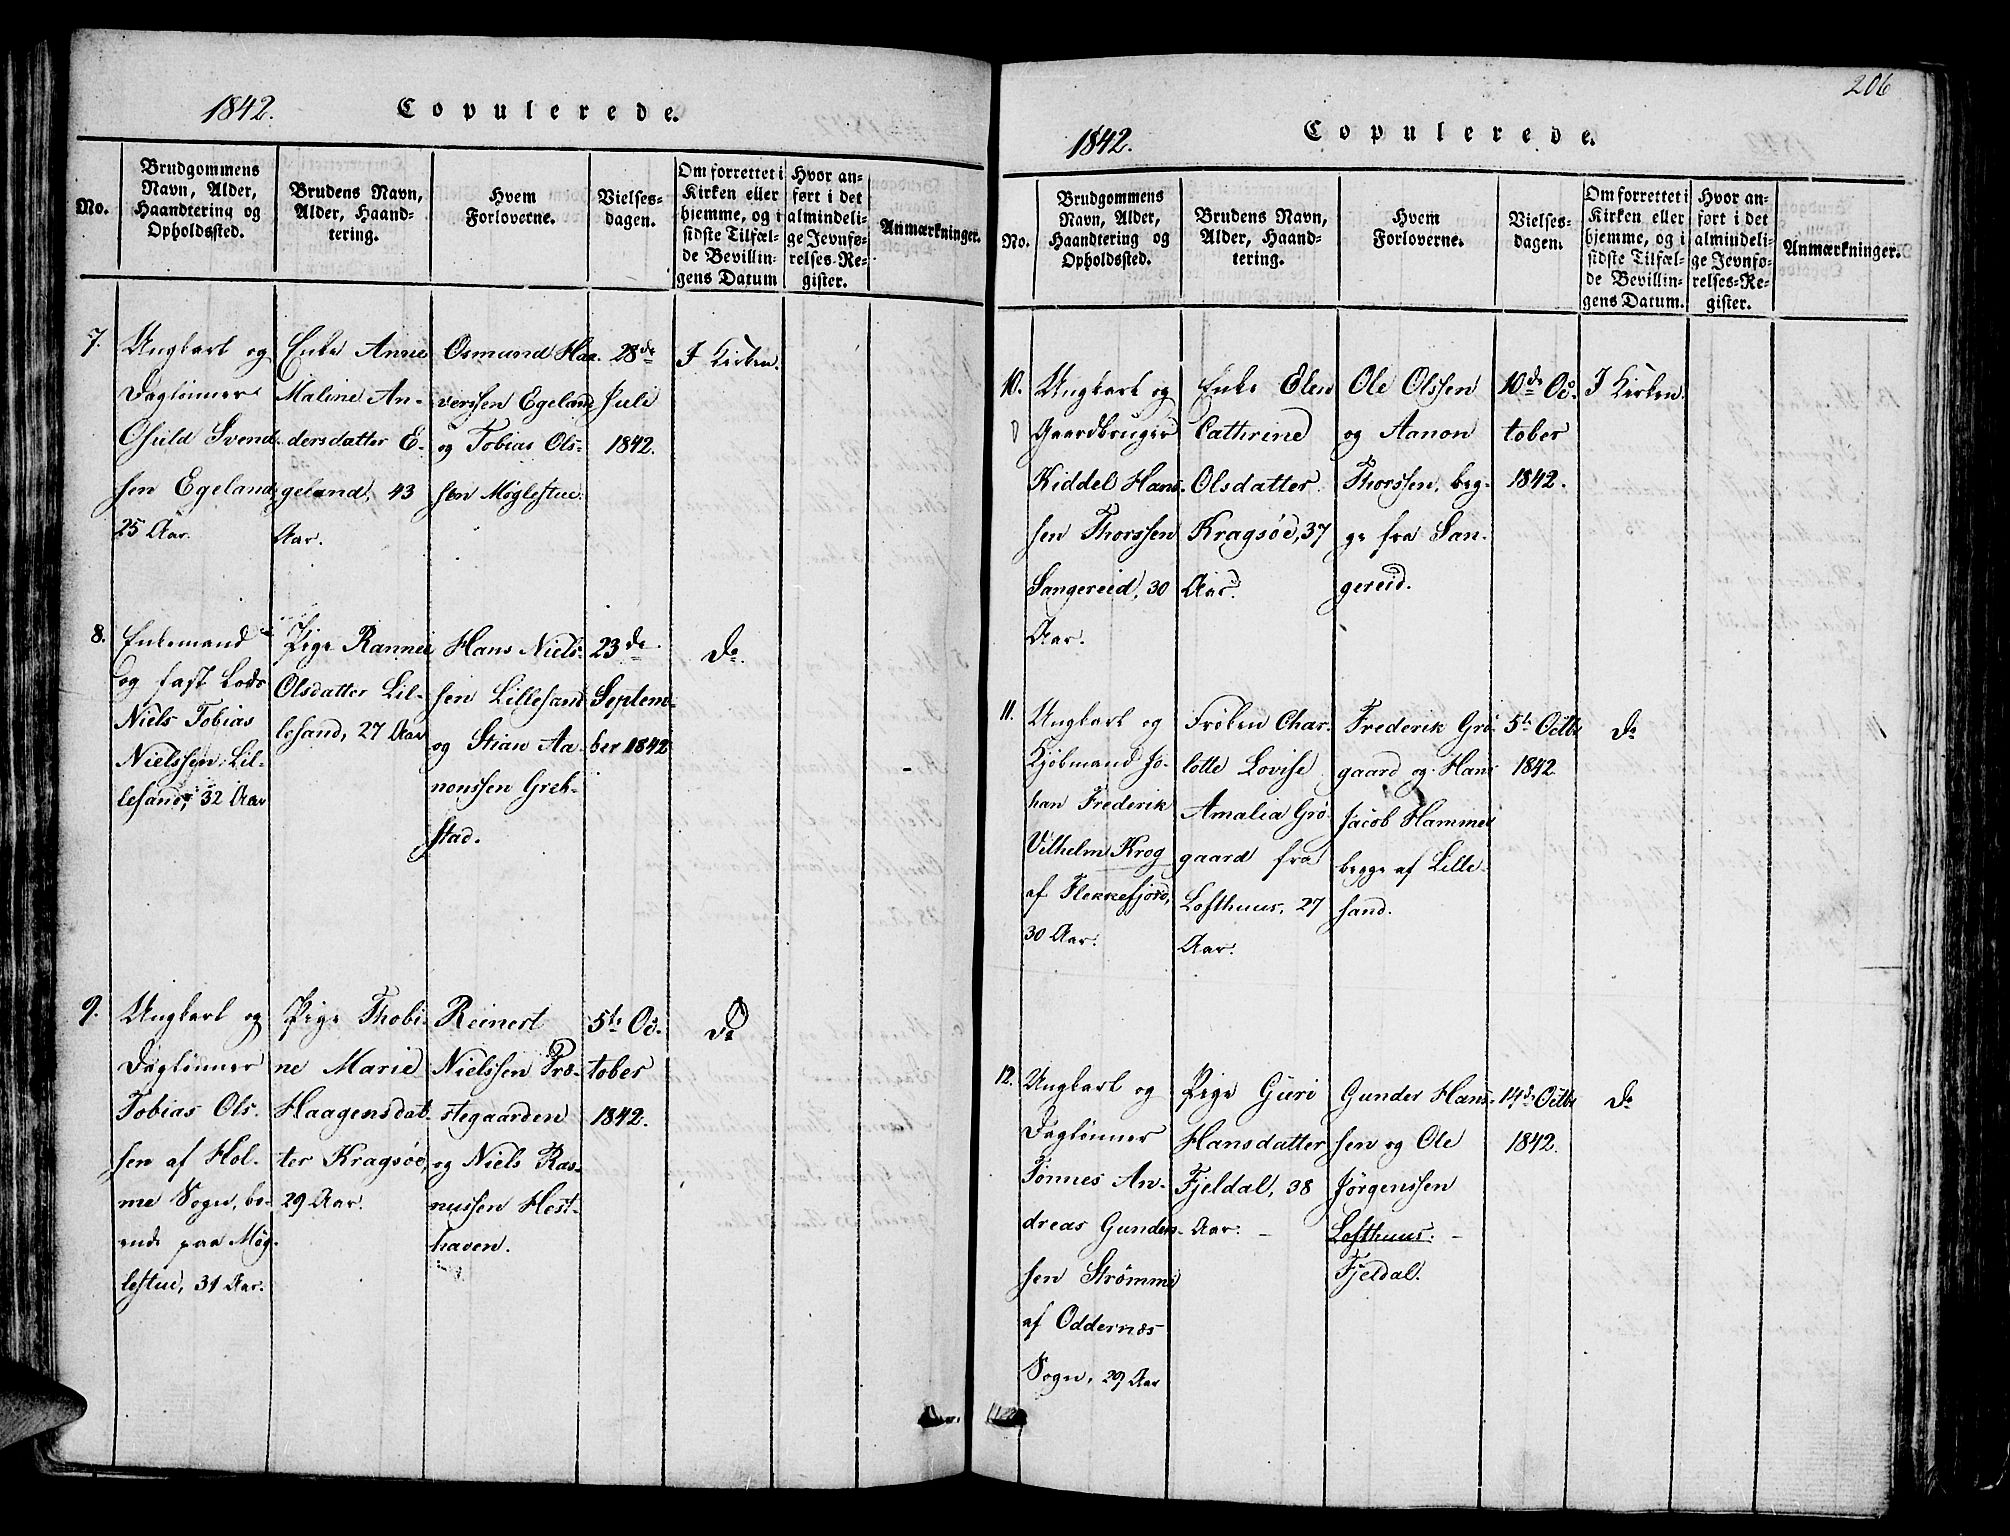 1842. Copulerede.
No.
Brudgommens
Navn, Alder,
Haandtering og
Opholdssted.
Brudens Navn,
Alder, Haand-
tering.
Hvem
Forloverne.
Vielses-
dagen.
Om forrettet i
Kirken eller
hjemme, og i
sidste Tilfæl-
de Bevillin-
gens Datum
Hvor an-
ført i det
almindeli-
ge Jevnfø-
relses-Re-
gister.
Anmærkninger.
7.
Ungkarl og
Daglønner
Osuld Svend-
sen Egeland,
25 Aar.
Enke Anne
Maline An-
dersdatter E-
geland, 43
Aar.
Osmund Haa-
verssen Egeland
og Tobias Ols-
sen Møglestue.
28de
Juli
1842.
I Kirken.
8.
Enkemand
og fast Lods
Niels Tobias
Nielssen, Lil-
lesand, 32 Aar
Pige Rannei
Olsdatter Lil-
lesand, 27 Aar
Hans Niels-
sen Lillesand
og Stian Aa-
nonssen Greb-
stad.
23de
Septem-
ber 1842
Do
9.
Ungkarl og
Daglønner
Tobias Ols-
sen af Hol-
me Sogn, bo-
ende paa Møg-
lestue, 31 Aar.
Pige Thobi-
ne Marie
Haagensdat-
ter Kragsøe,
29 Aar.
Reinert
Nielssen Præ-
stegaarden
og Niels Ras-
mussen Hest-
haven.
5te Oc-
tober
1842.
Do
206
1842. Copulerede.
No.
Brudgommens
Navn, Alder,
Haandtering og
Opholdssted.
Brudens Navn,
Alder, Haand-
tering.
Hvem
Forloverne.
Vielses-
dagen.
Om forrettet i
Kirken eller
hjemme, og i
sidste Tilfæl-
de Bevillin-
gens Datum.
Hvor an-
ført i det
almindeli-
ge Jevnfø-
relses-Re-
gister.
Anmærkninger.
10.
Ungkarl og
Gaardbruger
Kiddel Hans-
sen Thorssen
Sangereid, 30
Aar.
Enke Elen
Cathrine
Olsdatter
Kragsøe, 37
Aar.
Ole Olssen
og Aanon
Thorssen, beg-
ge fra San-
gereid.
10de Oc-
tober
1842.
I Kirken.
11.
Ungkarl og
Kjøbmand Jo-
han Frederik
Vilhelm Krog
af Flekkefjord,
30 Aar.
Frøken Char-
lotte Lovise
Amalia Grø-
gaard fra
Lofthuus, 27
Aar.
Frederik Grø-
gaard og Hans
Jacob Hammer
begge af Lille-
sand.
5te Octbr
1842
Do
12.
Ungkarl og
Daglønner
Tønnes An-
dreas Gunders-
sen Strømme
af Oddernæs
Sogn, 29 Aar
Pige Guri
Hansdatter
Fjeldal, 38
Aar. -
Gunder Hans-
sen og Ole
Jørgenssen
Lofthuus. -
Fjeldal.
14de Octbr
1842.
Do